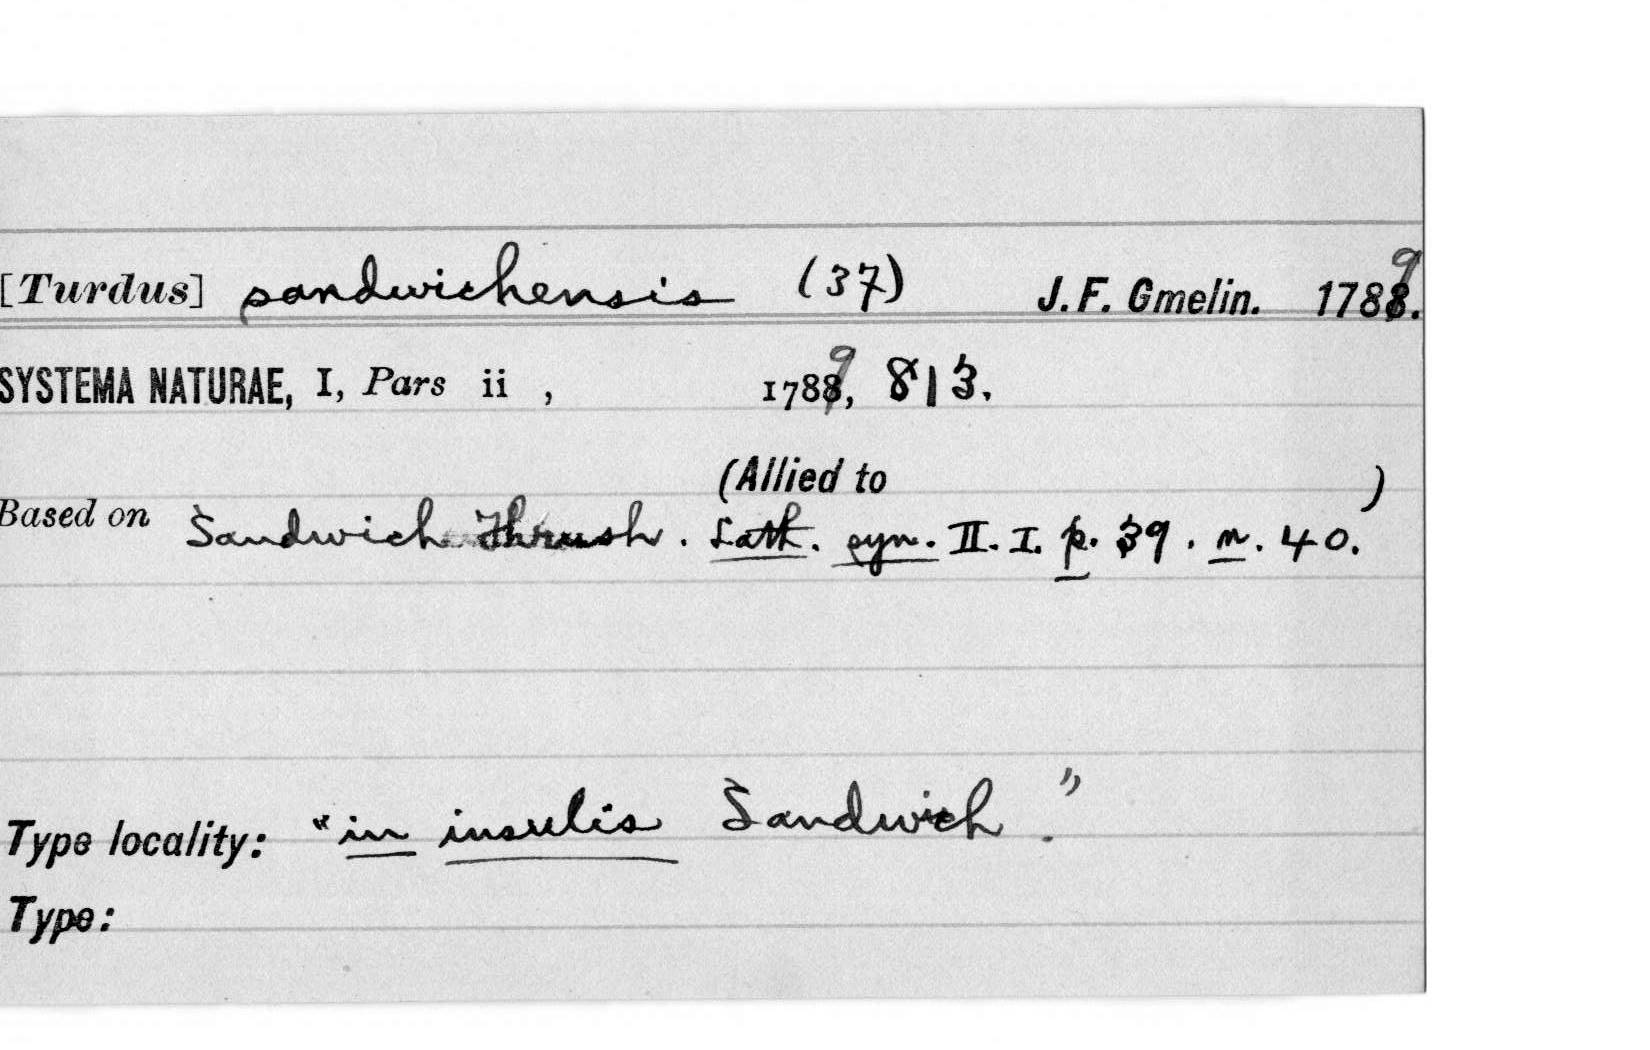 [Turdus] sandwichensis (37) J. F. Gmelin. 1789.
SYSTEMA NATURAE, I, Pars ii , 1789, 813.
(Allied to )
Based on Sandwich Thrush. Lath. syn. II. I. p. 39. n. 40.
Type locality: "in insulis Sandwich."
Type: